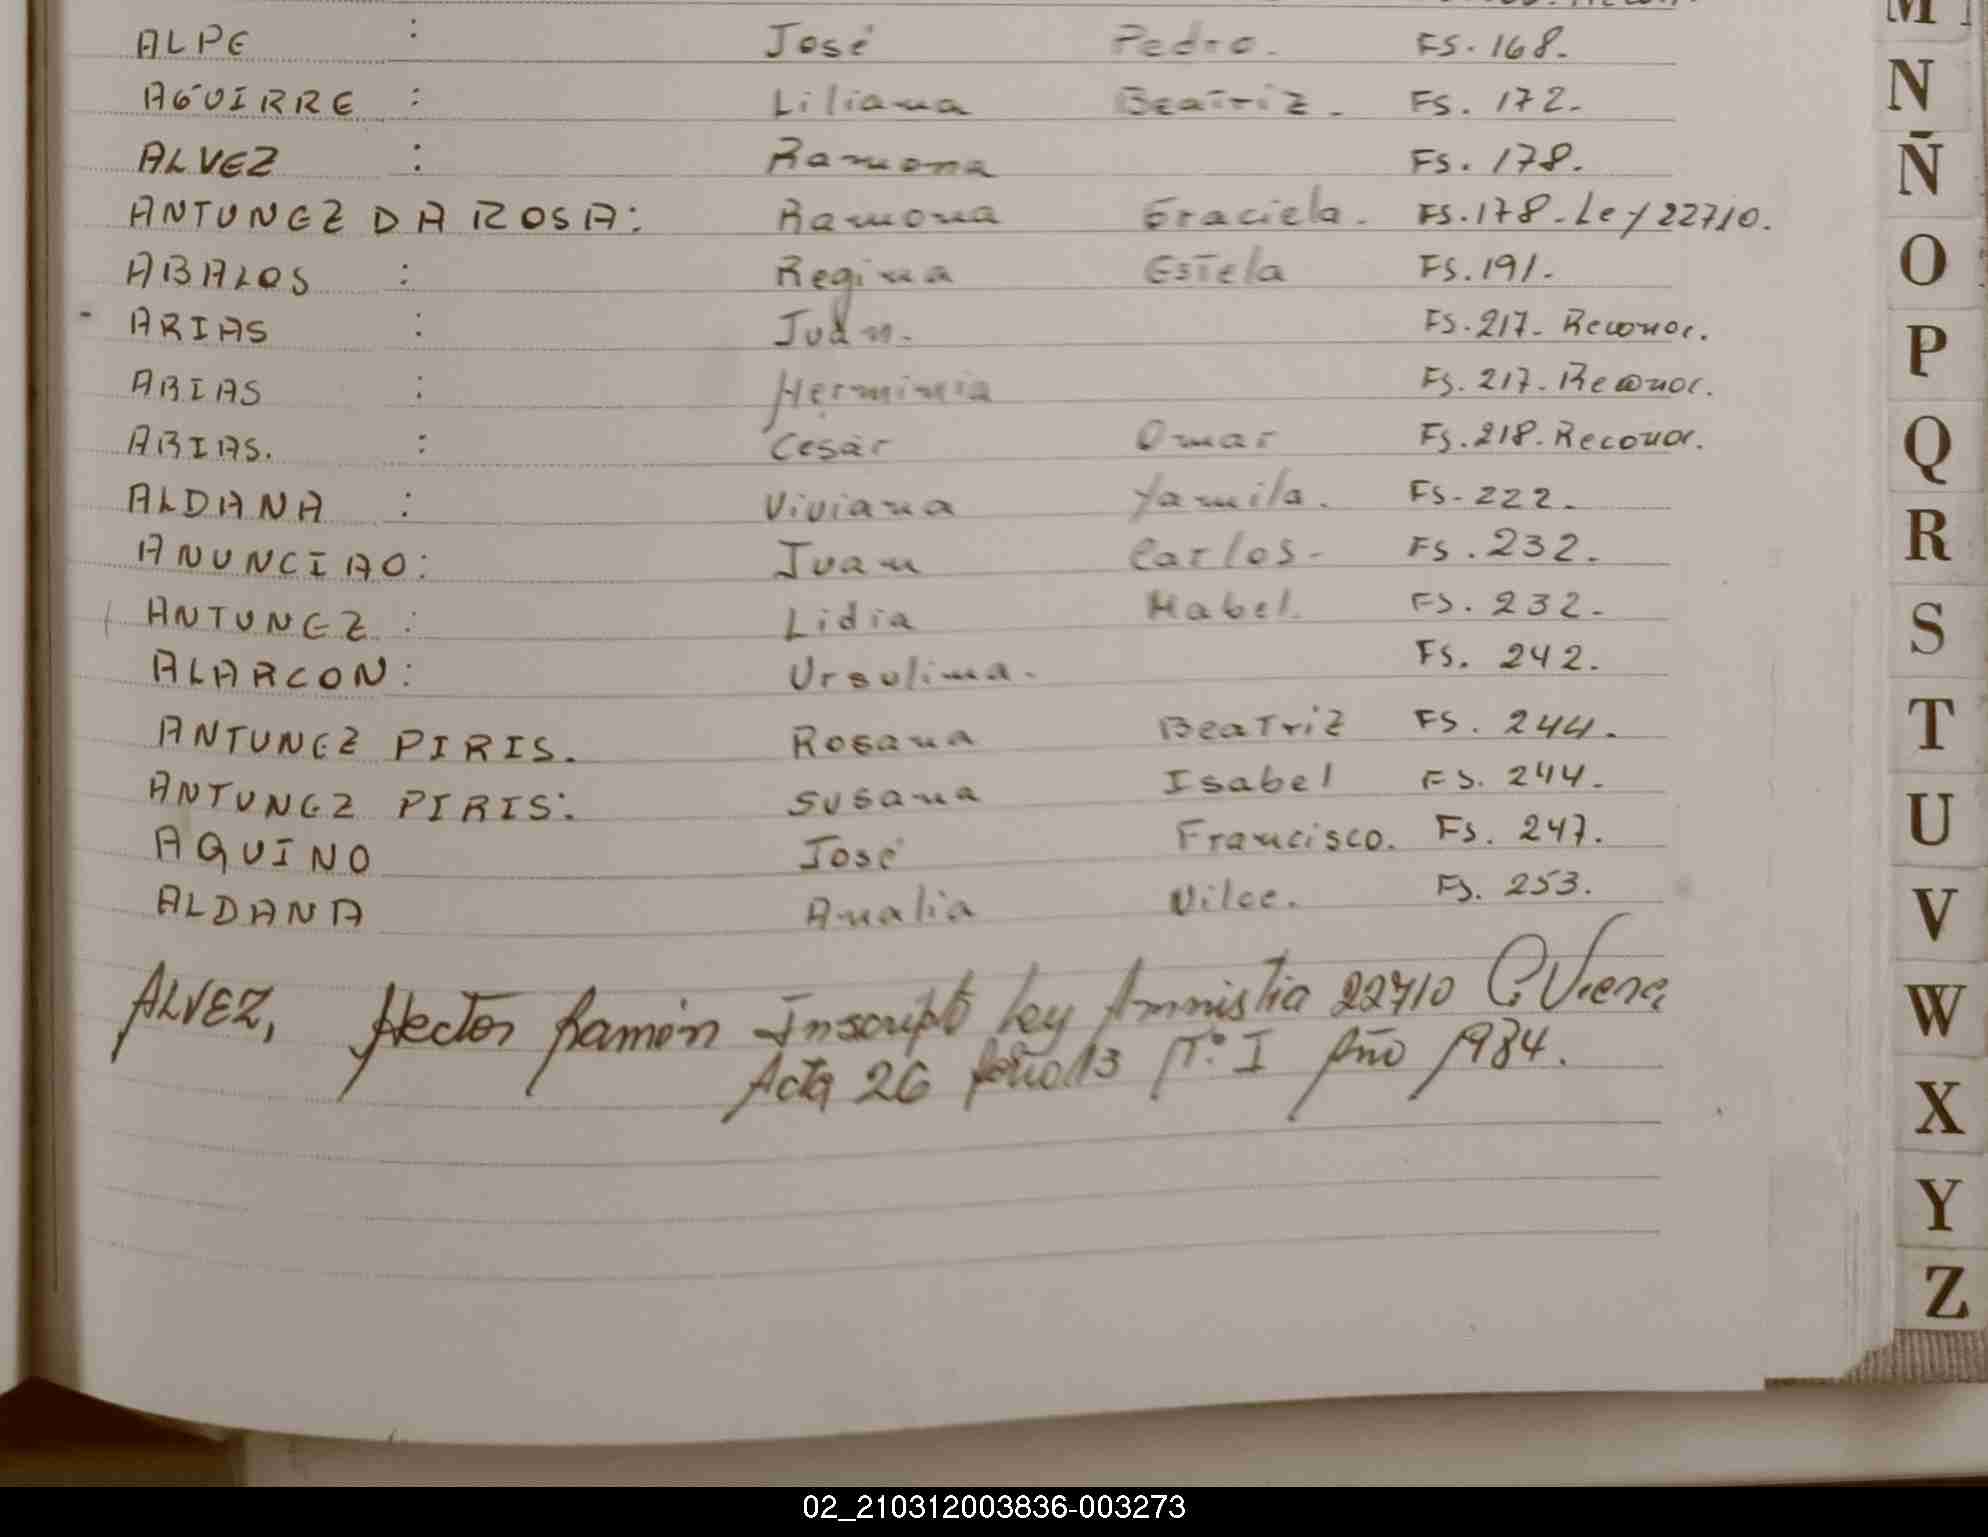 ALPE : José Pedro. FS. 168.
AGUIRRE : Liliana Beatriz. FS. 172.
ALVEZ : Ramona FS. 178.
ANTUNEZ DA ROSA: Ramona Graciela. FS. 178. Ley 22710.
ABALOS : Regina Estela FS. 191.
- ARIAS : Juan. FS. 217. Reconoc.
ARIAS : Herminia FS. 217. Reconoc.
ARIAS. : Cesar Omar FS. 218. Reconoc.
ALDANA : Viviana Yamila. FS. 222.
ANUNCIAO: Juan Carlos. FS. 232.
ANTUNEZ : Lidia Mabel. FS. 232.
ALARCON: Ursulina. FS. 242.
ANTUNEZ PIRIS. Rosana Beatriz FS. 244.
ANTUNEZ PIRIS: Susana Isabel FS. 244.
AQUINO José Francisco. FS. 247.
ALDANA Analia Nilce. FS. 253.
ALVEZ, Hector Ramón Inscripto Ley Amnistia 22710 C. Viera
Acta 26 folio 13 Tº I Año 1984.
M
N
Ñ
O
P
Q
R
S
T
U
V
W
X
Y
Z
02_210312003836-003273